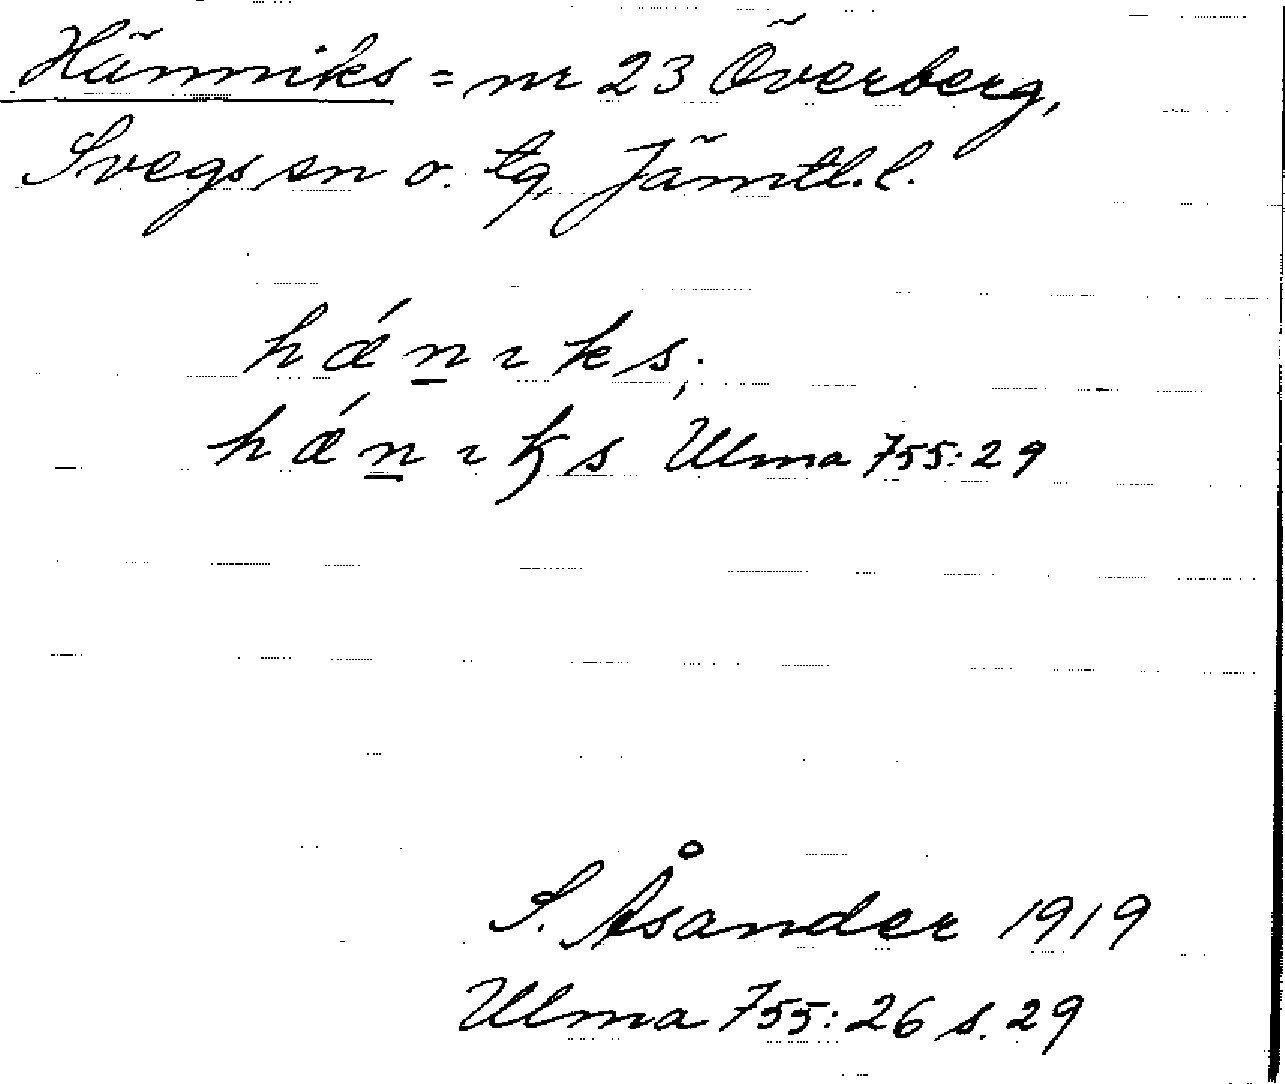 Hänniks = nr 23 Överberg,
Svegs sn o. tg, Jämtl. l.
hǽn̲ɿks;
hǽn̲ɿꝁs Ulma 755:29
S. Åsander 1919
Ulma 755:26 s. 29